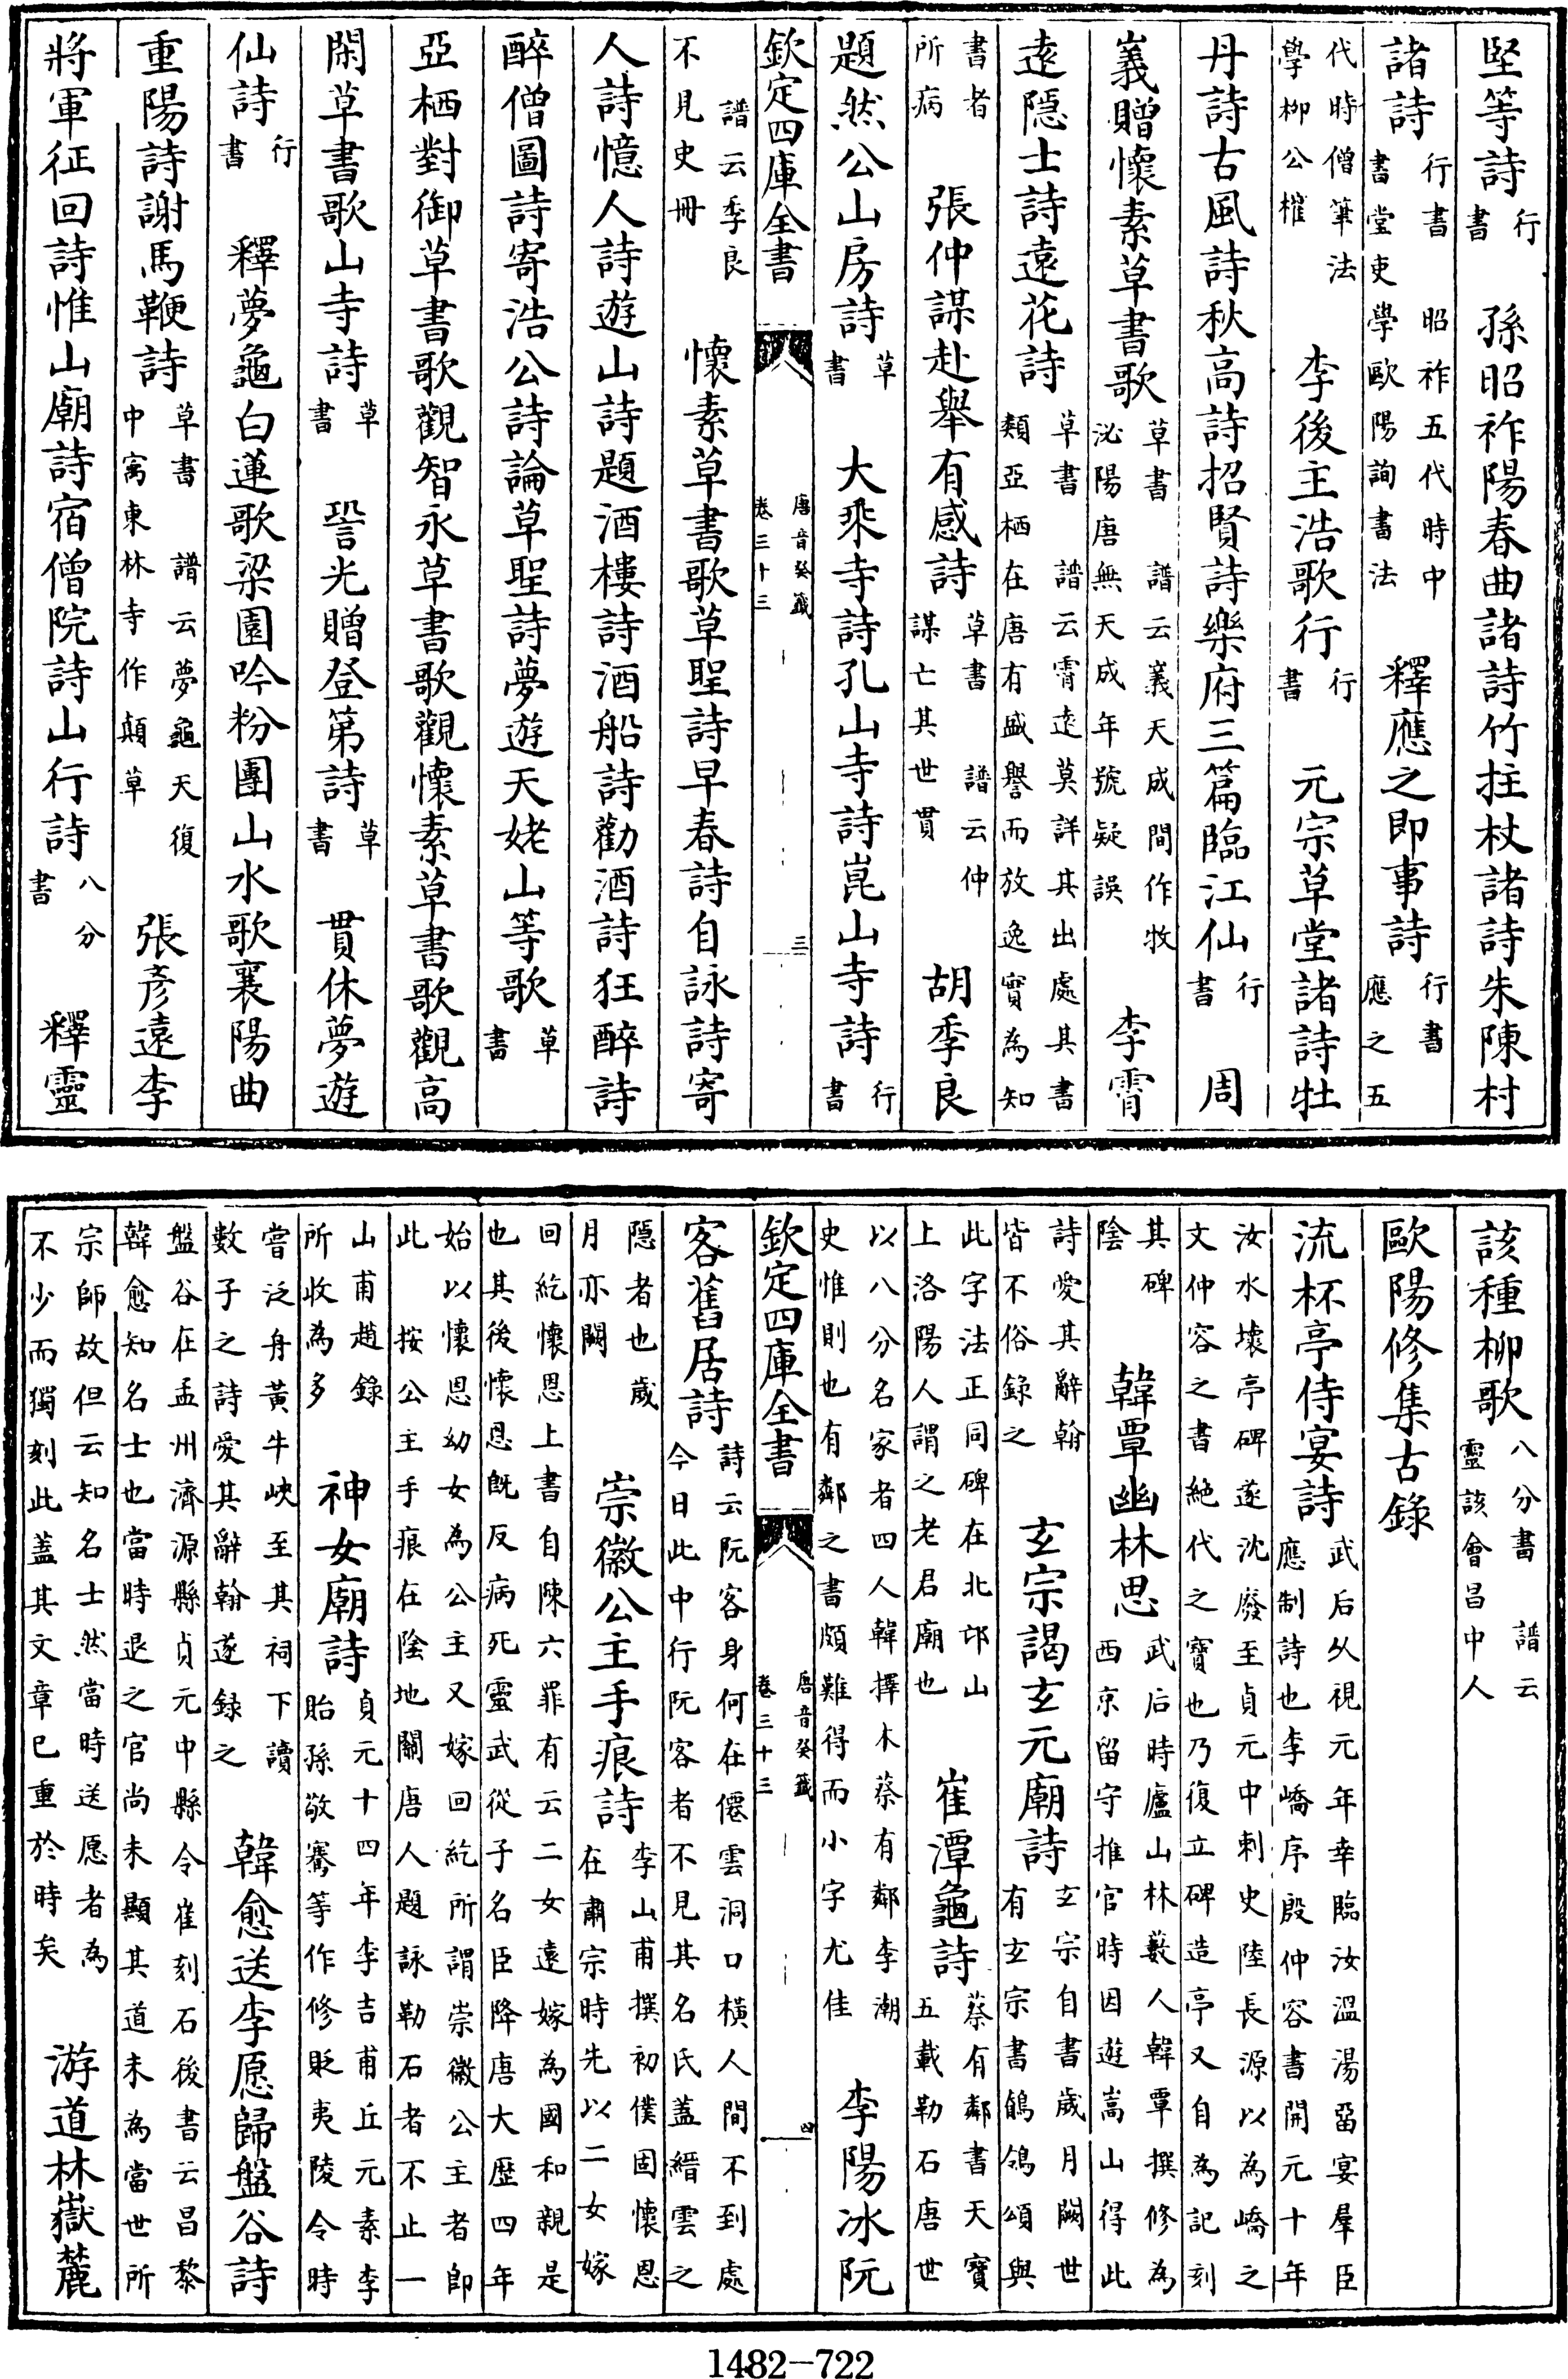 堅等詩行書　孫昭祚陽春曲諸詩竹拄杖諸詩朱陳村
諸詩行書　昭祚五代時中書堂吏學歐陽詢書法　釋應之即事詩行書應之五
代時僧筆法學柳公權　李後主浩歌行行書　元宗草堂諸詩牡
丹詩古風詩秋高詩招賢詩樂府三篇臨江仙行書　周
義贈懷素草書歌草書　譜云義天成間作牧泌陽唐無天成年號疑誤　李霄
逺隠士詩遠花詩草書　譜云霄逺莫詳其出處其書類亞栖在唐有盛譽而放逸實為知
書者所病　張仲謀赴舉有感詩草書　譜云仲謀亡其世貫　胡季良
題然公山房詩草書　大乘寺詩孔山寺詩崑山寺詩行書
欽定四庫全書　唐音癸籤卷三十三　三
譜云季良不見史冊　懷素草書歌草聖詩早春詩自詠詩寄
人詩憶人詩遊山詩題酒樓詩酒船詩勸酒詩狂醉詩
醉僧圖詩寄浩公詩論草聖詩夢遊天姥山等歌草書
亞栖對御草書歌觀智永草書歌觀懷素草書歌觀高
閑草書歌山寺詩草書　䛒光贈登第詩草書　貫休夢遊
仙詩行書　釋夢龜白蓮歌梁園吟粉團山水歌襄陽曲
重陽詩謝馬鞭詩草書　譜云夢龜天復中寓東林寺作顛草　張彥遠李
將軍征回詩惟山廟詩宿僧院詩山行詩八分書　釋靈
該種柳歌八分書　譜云靈該會昌中人
歐陽修集古錄
流杯亭侍宴詩武后乆視元年幸臨汝溫湯畱宴羣臣應制詩也李嶠序殷仲容書開元十年
汝水壞亭碑遂沈廢至貞元中刺史陸長源以為嶠之文仲容之書絶代之寶也乃復立碑造亭又自為記刻
其碑陰　韓覃幽林思武后時廬山林藪人韓覃撰修為西京留守推官時因遊嵩山得此
詩愛其辭翰皆不俗錄之　玄宗謁玄元廟詩玄宗自書歲月闕世有玄宗書鶺鴒頌與
此字法正同碑在北邙山上洛陽人謂之老君廟也　崔潭龜詩蔡有鄰書天寶五載勒石唐世
以八分名家者四人韓擇木蔡有鄰李潮史惟則也有鄰之書頗難得而小字尤佳　李陽冰阮
欽定四庫全書　唐音癸籤卷三十三　四
客舊居詩詩云阮客身何在僊雲洞口橫人間不到處今日此中行阮客者不見其名氏蓋縉雲之
隱者也歲月亦闕　崇徽公主手痕詩李山甫撰初僕固懷恩在肅宗時先以二女嫁
回紇懷恩上書自陳六罪有云二女遠嫁為國和親是也其後懷恩既反病死靈武從子名臣降唐大歴四年
始以懷恩幼女為公主又嫁回紇所謂崇徽公主者即此　按公主手痕在陰地關唐人題詠勒石者不止一
山甫趙錄所收為多　神女廟詩貞元十四年李吉甫丘元素李貽孫敬騫等作修貶夷陵令時
嘗泛舟黃牛峽至其祠下讀數子之詩愛其辭翰遂錄之　韓愈送李愿歸盤谷詩
盤谷在孟州濟源縣貞元中縣令崔刻石後書云昌黎韓愈知名士也當時退之官尚未顯其道未為當世所
宗師故但云知名士然當時送愿者為不少而獨刻此蓋其文章已重於時矣　游道林嶽麓
1482-722